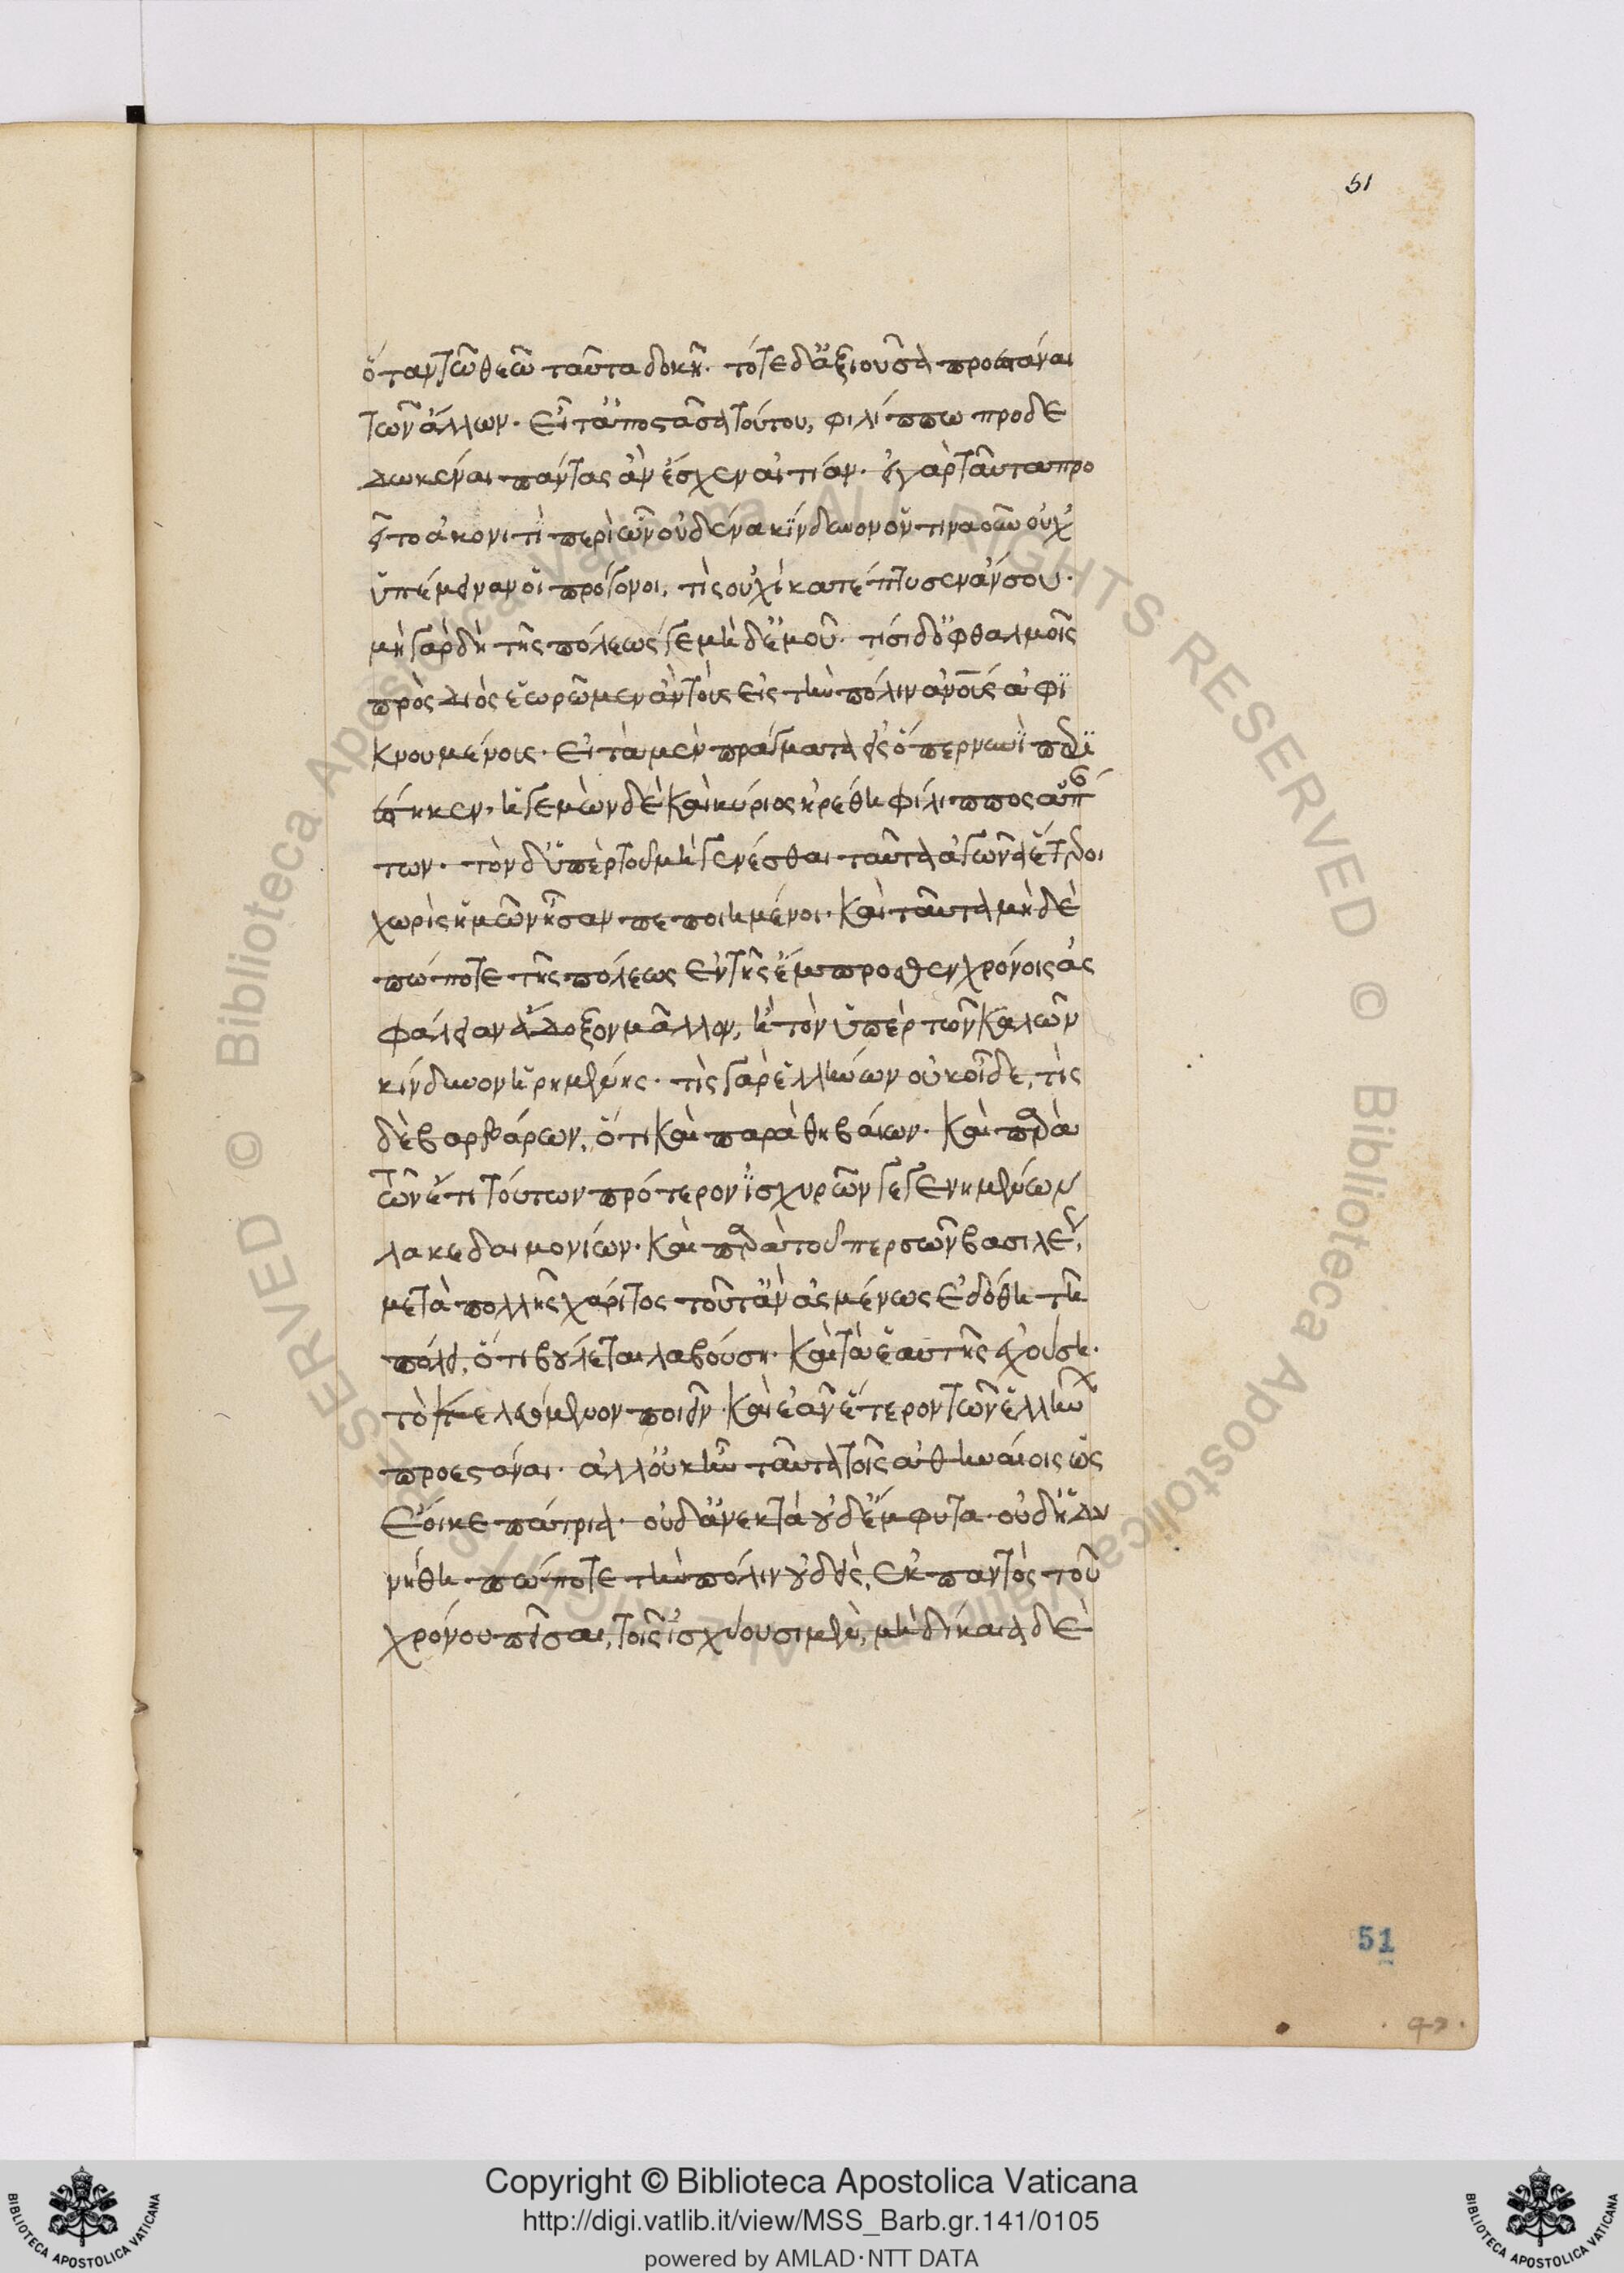 51
ὅταν τῶ θεῶ ταῦτα δοκῆ. τότε δ' ἀξιοῦσα προεστάναι
τῶν ἄλλων. εἶτ' ἀποστᾶσα τούτου, φιλίππω προδε
δωκέναι πάντας ἂν ἔσχεν αἰτίαν. εἰ γὰρ ταῦτα προ
εῖτο ἀκονιτὶ περὶ ὧν οὐδένα κίνδυνον ὅντινα οὖν οὐχ'
ὑπέμειναν οἱ πρόγονοι, τίς οὐχὶ κατέπτυσεν ἄν σου.
μὴ γὰρ δὴ τῆς πόλεως γε μηδ' ἐμοῦ. τίσι δ' ὀφθαλμοῖς
πρὸς διὸς ἑωρῶμεν ἂν τοὺς εἰς τὴν πόλιν ἀνους ἀφι
κνουμένοις. εἰ τὰ μὲν πράγματα εἰς ὅπερ νυνὶ περι
έστηκεν. ἡγεμὼν δὲ καὶ κύριος ἡρέθη φίλιππος ἁπάν
των. τὸν δ' ὑπὲρ τοῦ μὴ γενέσθαι ταῦτα ἀγῶνα ἕτεροι
χωρὶς ἡμῶν ἦσαν πεποιημένοι. καὶ ταῦτα μηδὲ
πώποτε τῆς πόλεως ἐν τῆς ἔμπροσθεν χρόνοις ἀσ
φάλειαν ἄδοξον μᾶλλον, ἢ τὸν ὑπὲρ τῶν καλῶν
κίνδυνον ἡρημένης. τίς γὰρ ἑλλήνων οὐκ οἶδε, τίς
δὲ βαρβάρων, ὅτι καὶ παρὰ θηβαίων. καὶ παρὰ
τῶν ἔτι τούτων πρότερον ἰσχυρῶν γεγενημένων
λακεδαιμονίων. καὶ παρὰ τοῦ περσῶν βασιλέως,
μετὰ πολλῆς χάριτος τοῦτ' ἂν ἀσμένως ἐδόθη τῆ
πόλει, ὅτι βούλεται λαβούση. καὶ τὰ ἑαυτῆς ἐχούση.
τὸ κελευόμενον ποιεῖν. καὶ ἐᾶν ἕτερον τῶν ἑλλήνων
προεστάναι. ἀλλ' οὐκ ἦν ταῦτα τοῖς ἀθηναίοις ὡς
ἔοικε πάτρια. οὐδ' ἀνεκτὰ οὐδ' ἔμφυτα. οὐδ' ἠδυ
νήθη πώποτε τὴν πόλιν οὐδεὶς, ἐκ παντὸς τοῦ
χρόνου πεῖσαι, τοῖς ἰσχύουσι μὲν, μὴ δίκαια δὲ
51
Copyright © Biblioteca Apostolica Vaticana
http://digi.vatlib.it/view/MSS_Barb.gr.141/0105
powered by AMLAD·NTT DATA